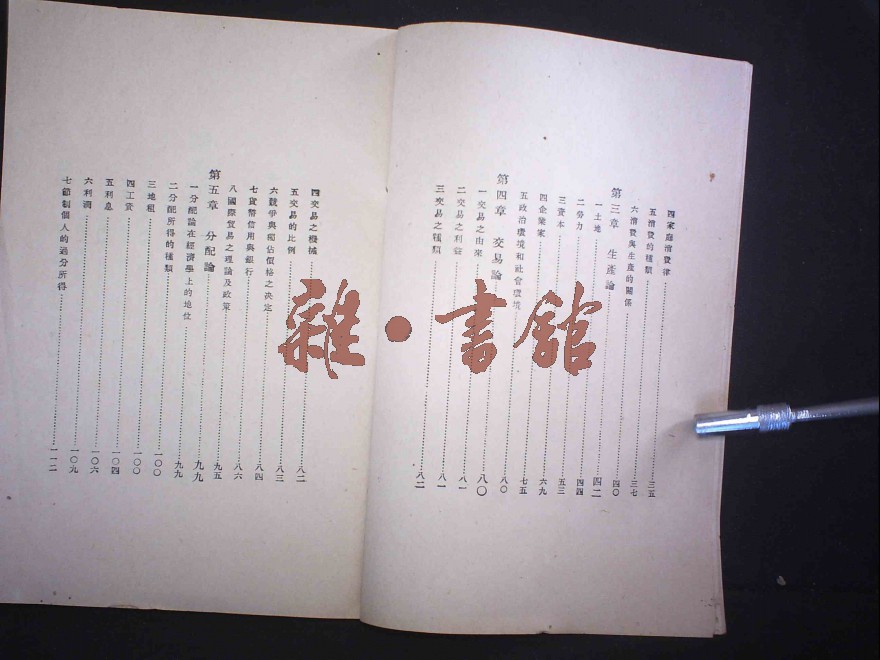 四家庭消費律……三五
五消費的種類……三七
六消費與生產的關係……四〇
第三章 生產論……四二
一土地……四四
二勞力……五三
三資本……六九
四企業家……七五
五政治環境和社會環境……八〇
第四章 交易論……八〇
一交易之由來……八一
二交易之利益……八一
三交易之種類……八二
四交易之機械……八二
五交易的比例……八三
六競爭與獨佔價格之決定……八四
七貨幣信用與銀行……八六
八國際貿易之理論及政策……九五
第五章 分配論……九九
一分配論在經濟學上的地位……九九
二分配所得的種類……一〇〇
三地租……一〇〇
四工資……一〇四
五利息……一〇六
六利潤……一〇九
七節制個人的過分所得……一一二
雜·書館